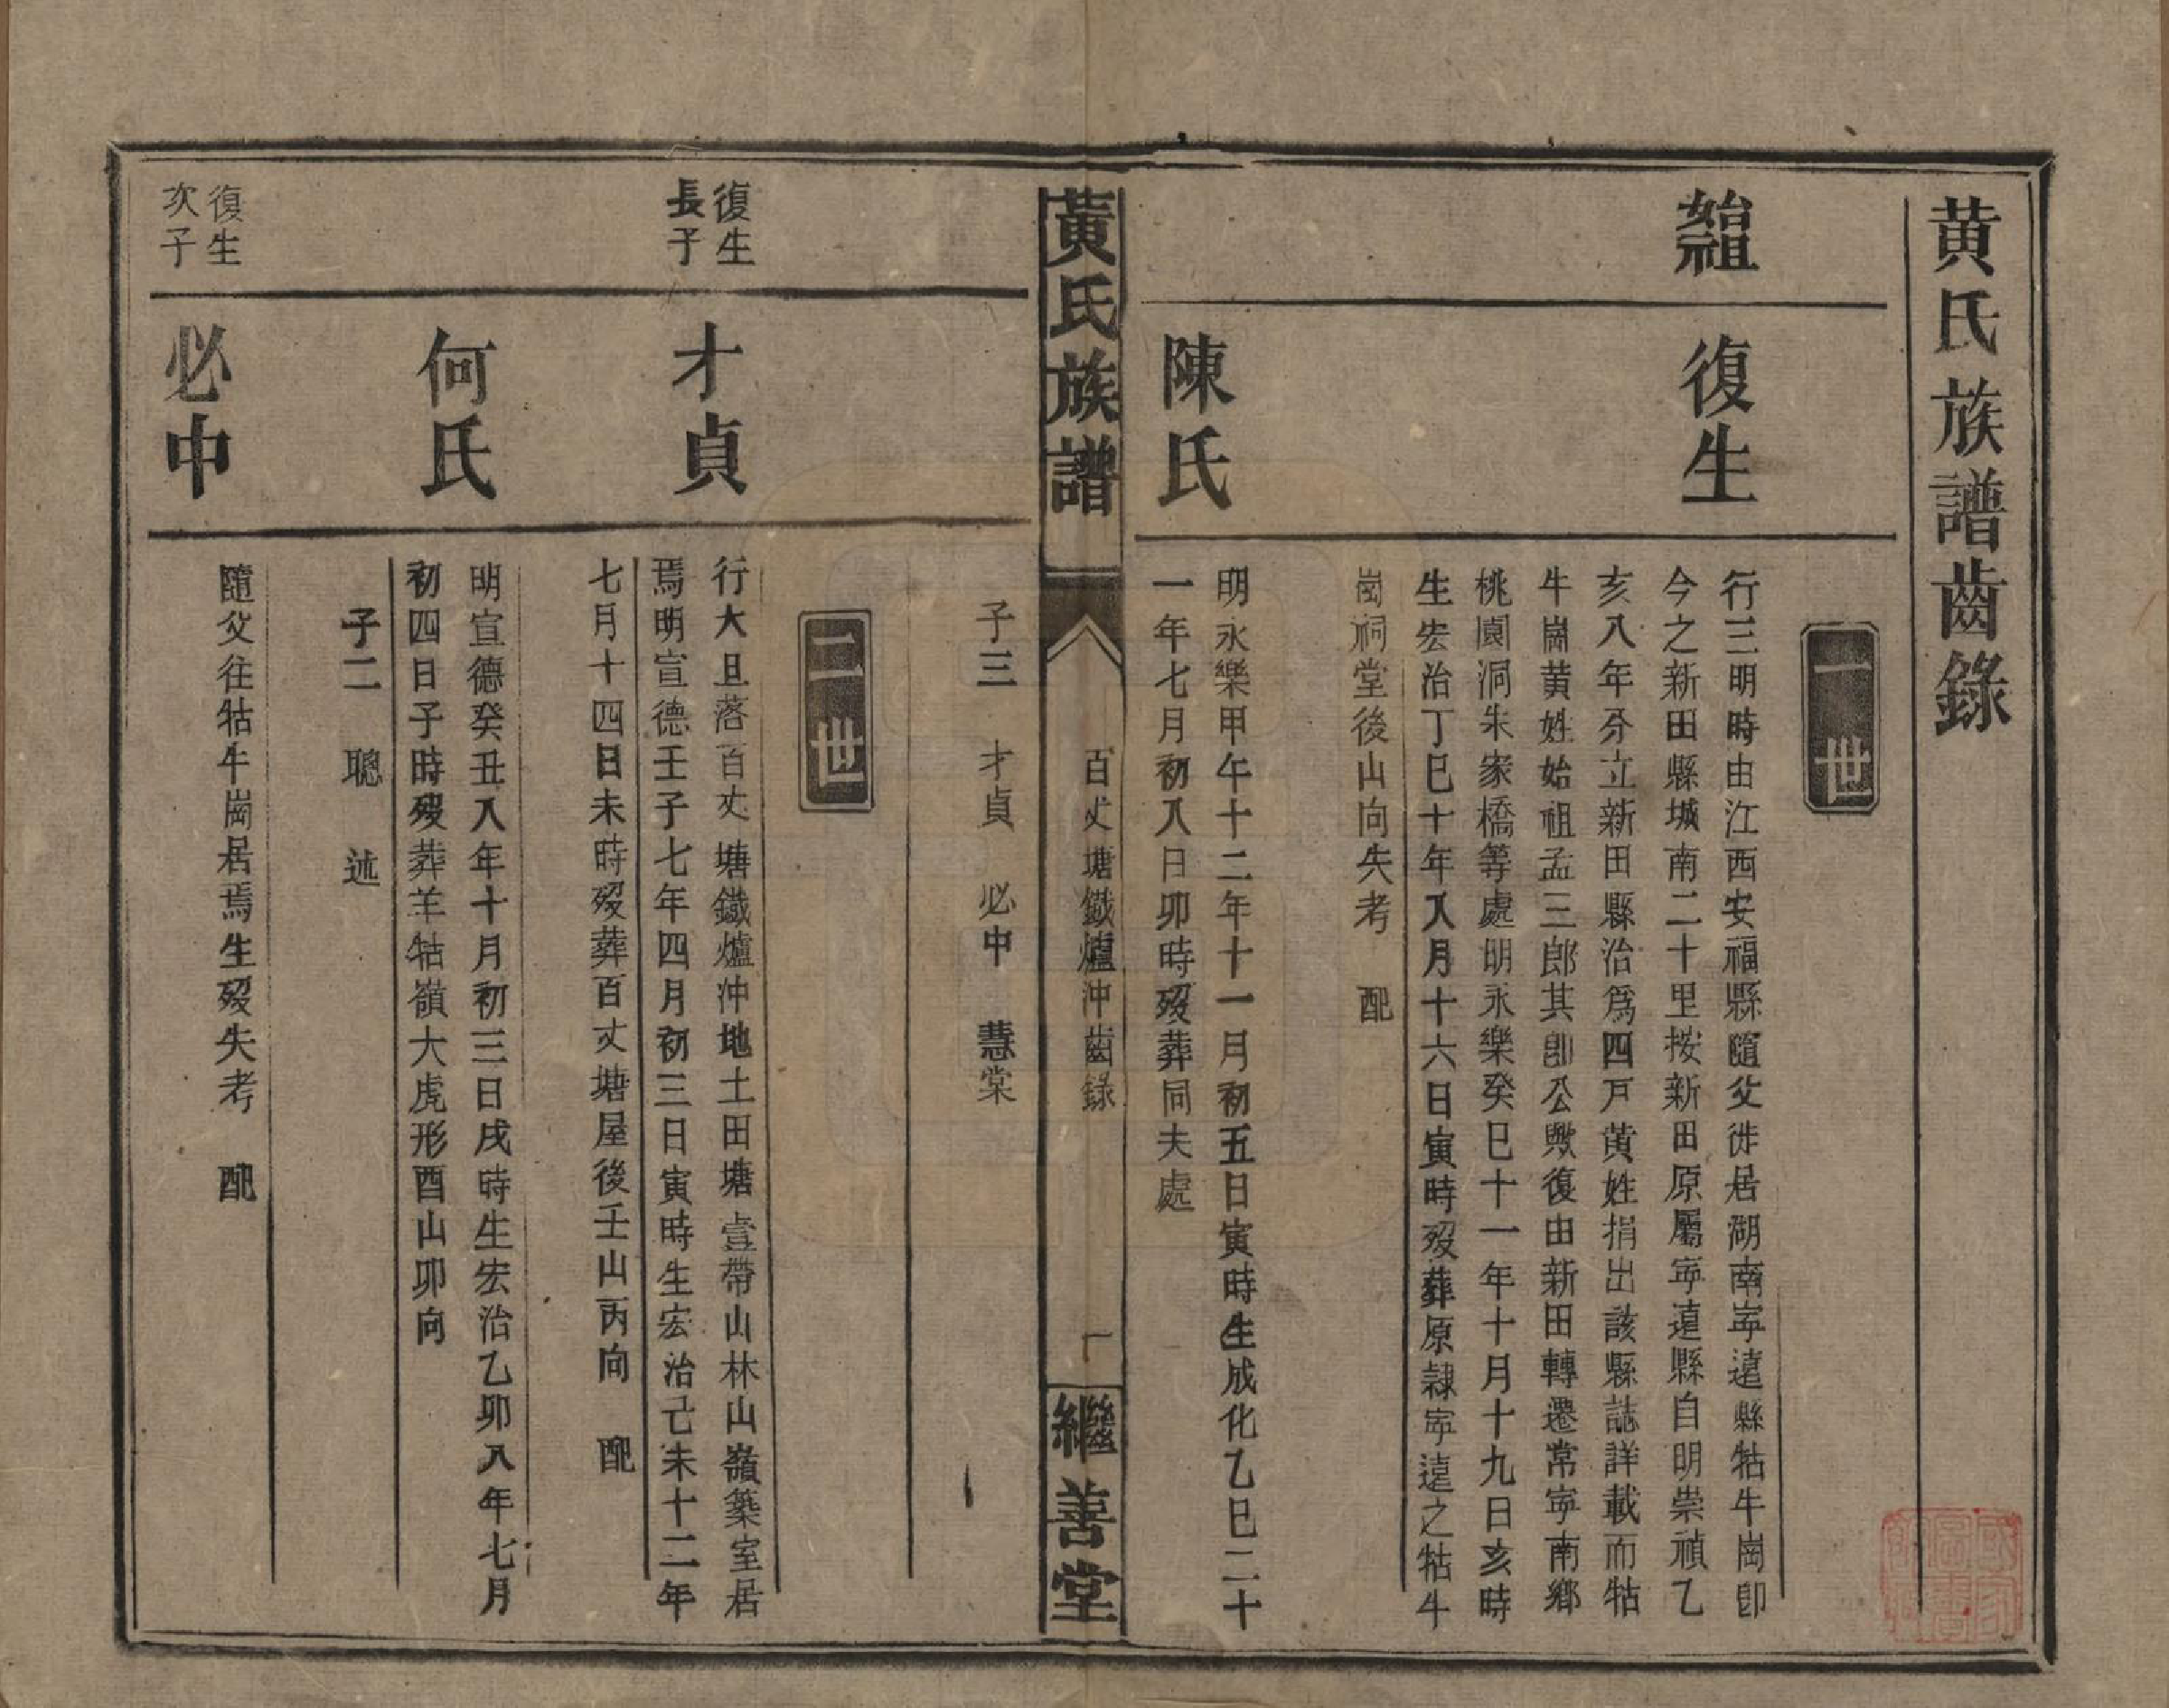 黄氏族譜齒錄
一世
復生
行三明時由江西安福縣隨父徙居湖南寧遠縣牯牛崗卽
今之新田縣城南二十里按新田原屬寧遠縣自明崇禎乙
亥八年分立新田縣治爲四戸黄姓捐出該縣誌詳載而牯
牛崗黄姓始祖孟三郎其卽公歟復由新田轉遷常寧南鄉
桃園洞朱家橋等處明永樂癸巳十一年十月十九日亥時
生宏治丁巳十年八月十六日寅時歿葬原隷寧遠之牯牛
崗祠堂後山向失考　配
陳氏
明永樂甲午十二年十一月初五日寅時生成化乙巳二十
一年七月初八日卯時歿葬同夫處
黄氏族譜
百丈塘鐵爐沖齒錄
一
繼善堂
子三　才貞　必中　慧棠
二世
復生
長子
才貞
行大旦落百丈塘鐵爐沖地土田塘壹帶山林山嶺築室居
焉明宣德壬子七年四月初三日寅時生宏治己未十二年
七月十四日未時歿葬百丈塘屋後壬山丙向　配
何氏
明宣德癸丑八年十月初三日戌時生宏治乙卯八年七月
初四日子時歿葬羊牯嶺大虎形酉山卯向
子二　聰　述
復生
次子
必中
隨父往牯牛崗居焉生歿失考　配